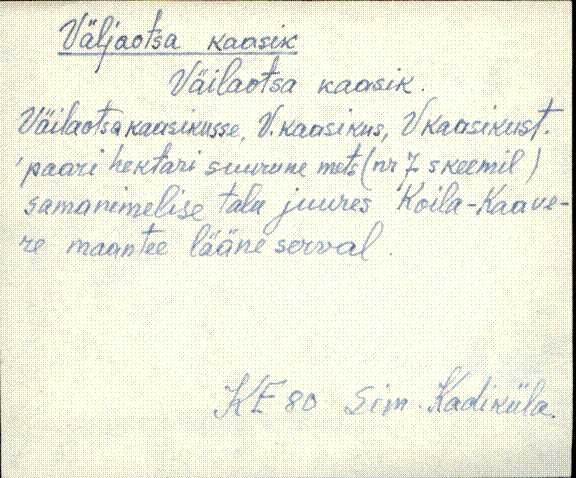 Väljaotsa kaasik
Väilaotsa kaasik.
Väilaotsa kaasikusse, V. kaasikus, V kaasikust.
'paari hektari suurune mets (nr 7 skeemil)
samanimelise talu juures Koila-Kaave-
re maantee lääne serval.
KE 80 Sim. Kadiküla.